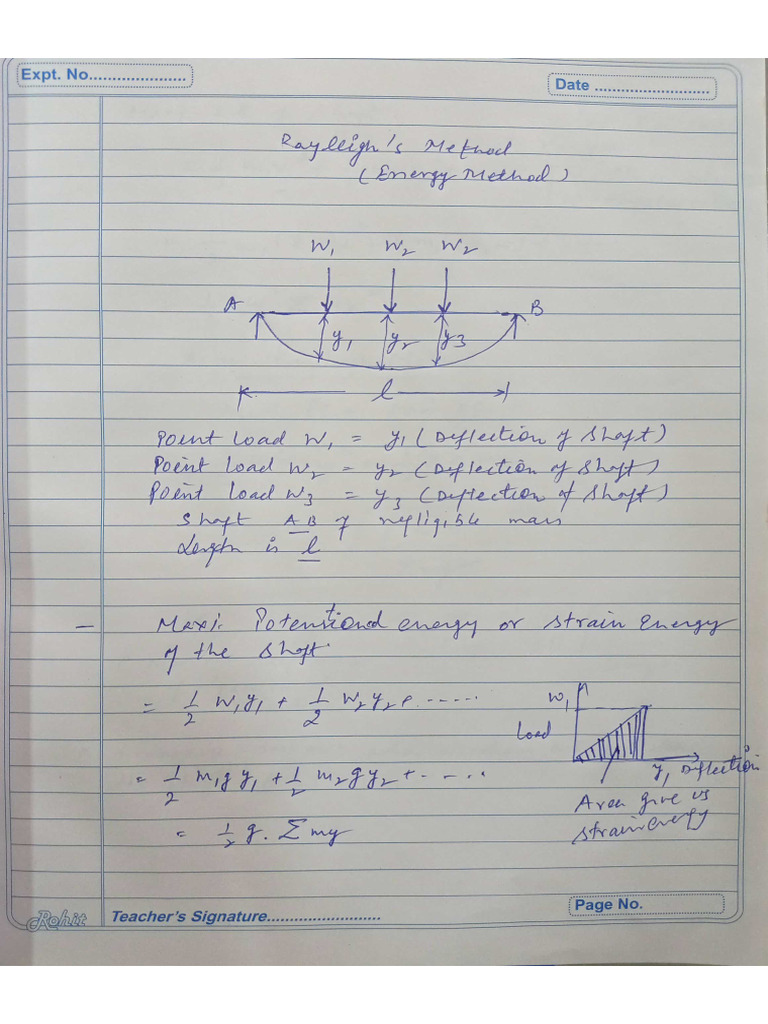 Expt. No.....................
Date .........................
Raylleigh's Method
(Energy Method)
W₁ W₂ W₂
A B
y₁ y₂ y₃
l
Point Load W₁ = y₁ (Deflection of Shaft)
Point Load W₂ = y₂ (Deflection of Shaft)
Point Load W₃ = y₃ (Deflection of Shaft)
Shaft AB of negligible mass
Length is l
— Maxi. Potentional energy or Strain Energy
of the Shaft.
= 1/2 W₁y₁ + 1/2 W₂y₂ + ......
W₁
Load
= 1/2 m₁g y₁ + 1/2 m₂g y₂ + .....
y₁ Deflection
Area give us
Strain energy
= 1/2 g. Σ my
Rohit
Teacher's Signature.........................
Page No.